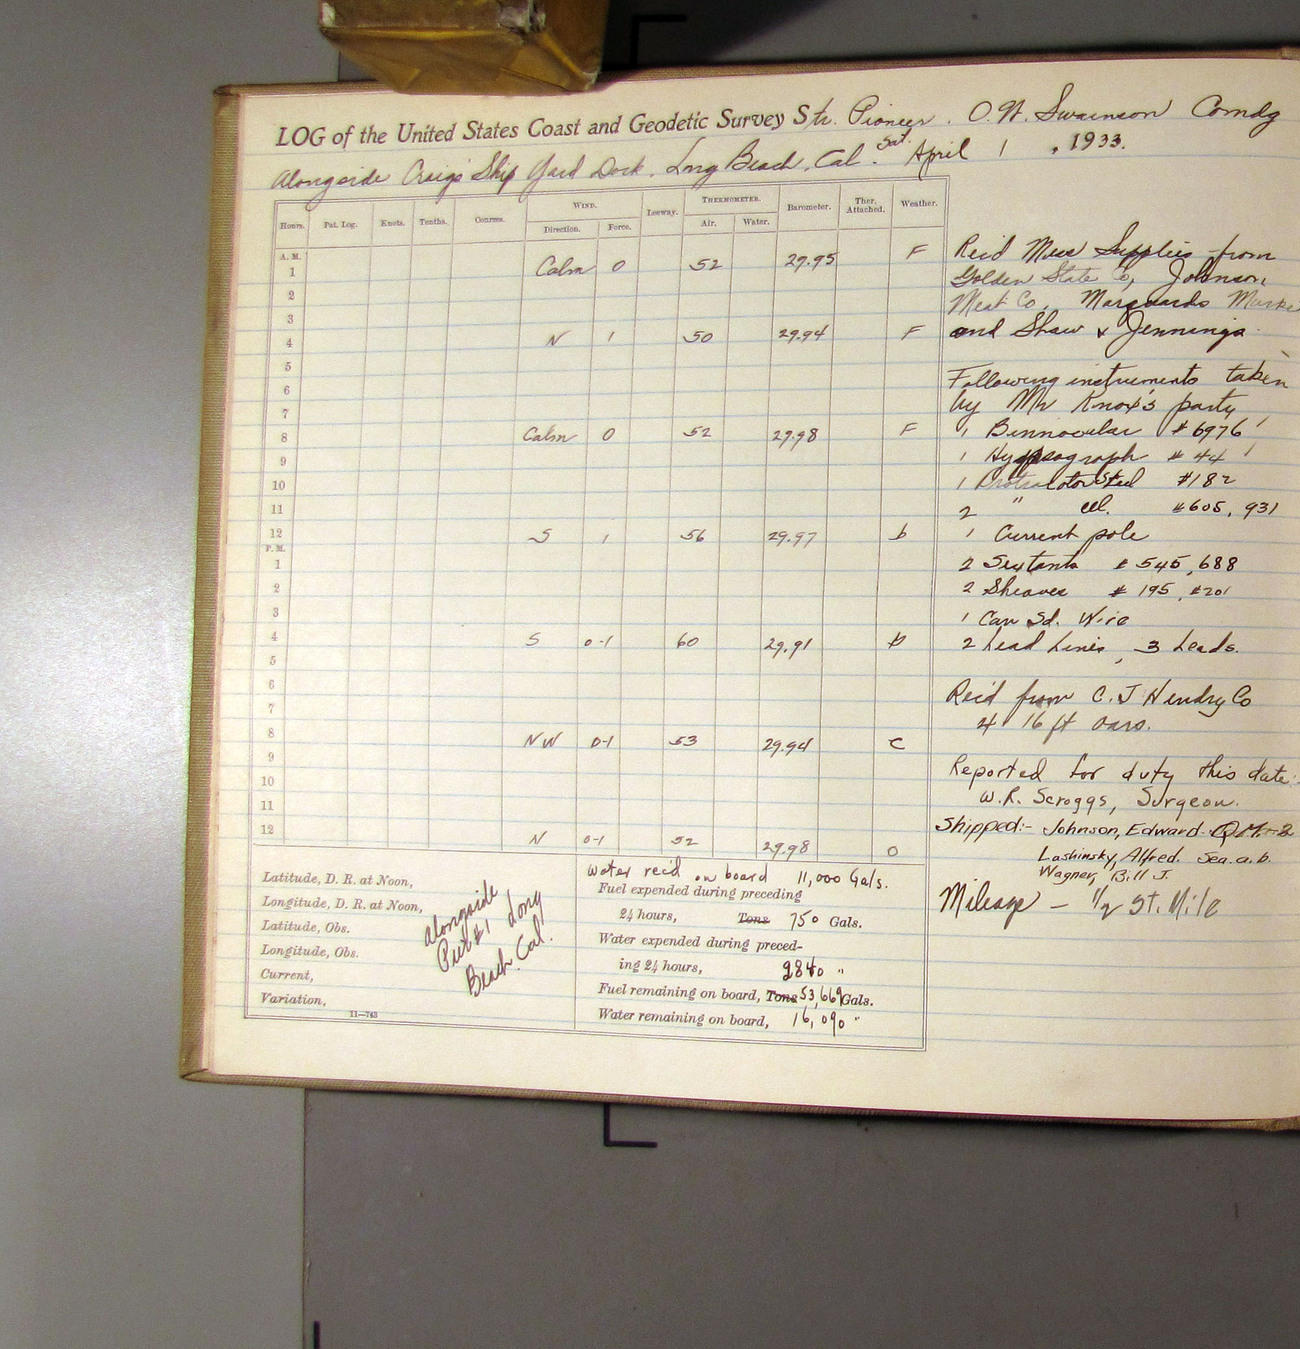 LOG of the United States Coast and Geodetic Survey Str. Pioneer. O. W. Swainson Comdg
Alongside Craigs Ship Yard Dock, Long Beach, Cal. Sat. April 1, 1933.
Hours. Pat. Log. Knots. Tenths. Courses. WIND. Leeway. THERMOMETER. Barometer. Ther. Attached. Weather.
Direction. Force. Air. Water.
A. M.
1 Calm 0 52 29.95 F
2
3
4 N 1 50 29.94 F
5
6
7
8 Calm 0 52 29.98 F
9
10
11
12 S 1 56 29.97 b
P. M.
1
2
3
4 S 0-1 60 29.91 b
5
6
7
8 NW 0-1 53 29.94 c
9
10
11
12 N 0-1 52 29.98 O
Latitude, D. R. at Noon,
Longitude, D. R. at Noon,
Latitude, Obs.
Longitude, Obs.
Current,
Variation,
11—743
alongside
#1 Long
Beach. Cal.
Water rec'd on board 11,000 Gals.
Fuel expended during preceding
24 hours, Tons 750 Gals.
Water expended during preced-
ing 24 hours, 2840 "
Fuel remaining on board, Tons 53,669 Gals.
Water remaining on board, 16,090 "
Rec'd Mess Supplies from
Golden State Co, Johnson
Meat Co, Marquards Marke
and Shaw & Jennings
Following instruments taken
by Mr Knox's party
1 Binnocular # 6976
1 Hypsograph # 44
1 Protractor Steel #182
2 " cel. #605, 931
1 Current pole
2 Sextants # 545, 688
2 Sheaves # 195, #201
1 Can Sd. Wire
2 Lead Lines, 3 Leads.
Rec'd from C. J Hendry Co
4 16 ft oars.
Reported for duty this date:
W. R. Scroggs, Surgeon.
Shipped:- Johnson, Edward. Q.M.-2
Lashinsky, Alfred. Sea. a.b.
Wagner, Bill J.
Mileage - 1/2 St. Mile